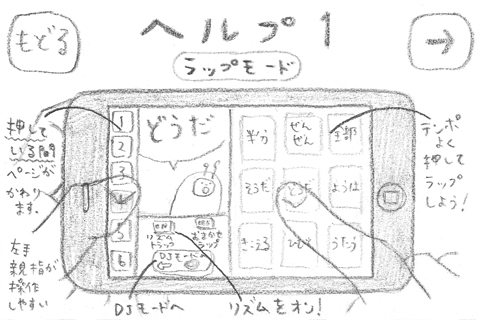 もどる
ヘルプ1
→
ラップモード
押して
いる間
ページが
かわり
ます。
左手
親指が
操作
しやすい
1
2
3
4
5
6
どうだ
ON
リズム
トラック
おまかせ
ラップ
DJモードへ
半分
ぜん
ぜん
全部
そうだ
どうだ
ようは
きこえる
ひびく
うたう
テンポ
よく
押して
ラップ
しよう!
DJモードへ
リズムをオン!